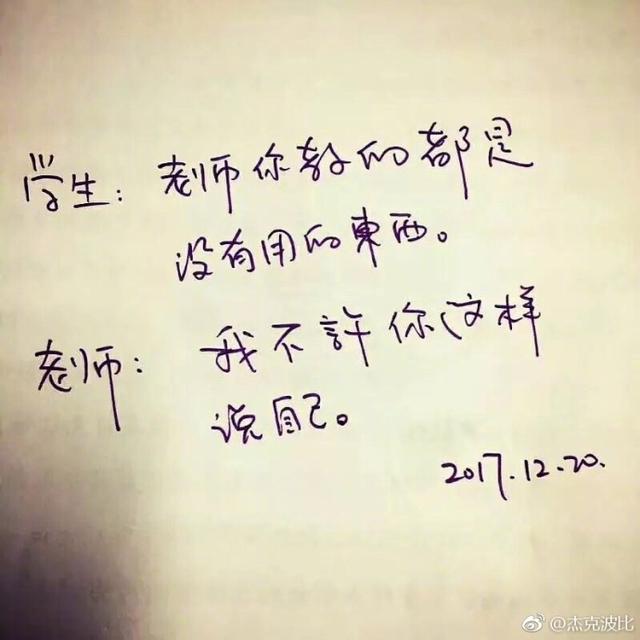 学生：老师你教的都是
没有用的東西。
老师：我不許你这样
说自己。
2017.12.20.
@杰克波比